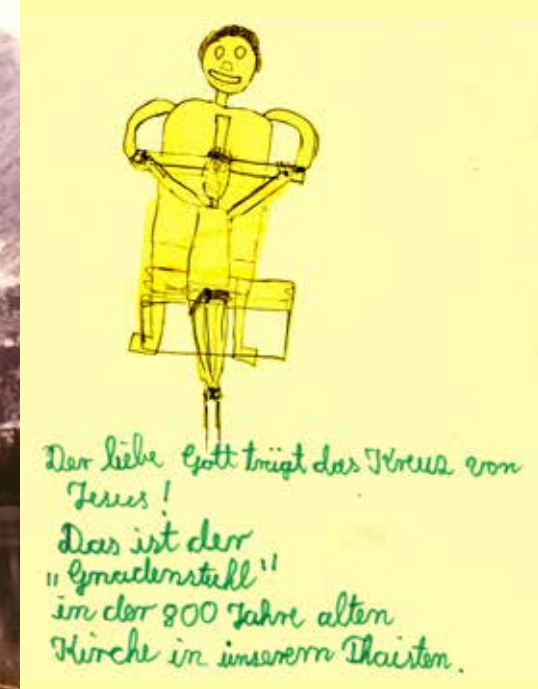 Der liebe Gott trägt das Kreuz von
Jesus!
Das ist der
"Gnadenstuhl"
in der 800 Jahre alten
Kirche in unserem Thaisten.